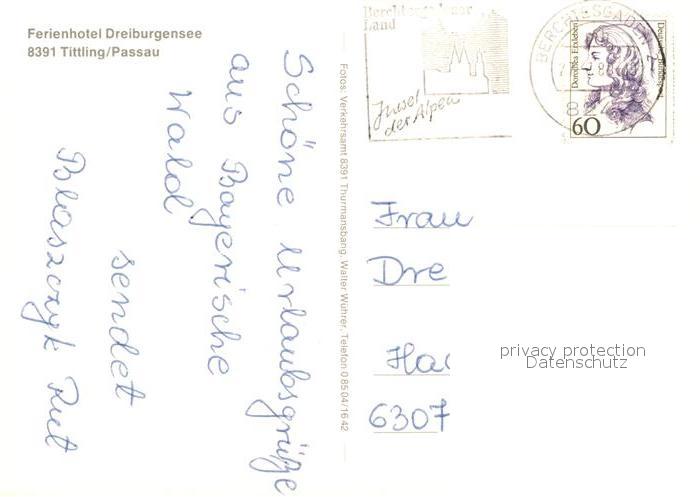 Ferienhotel Dreiburgensee
8391 Tittling/Passau
Schöne Urlaubsgrüße
aus Bayerische
Wald
sendet
Blaszczyk Rut
Fotos: Verkehrsamt 8391 Thurmansbang, Walter Wührer, Telefon 08504/1642
Berchtesgadener
Land
Insel
der Alpen
BERCHTESGADEN 1
82
Dorothea Erxleben
Deutsche Bundespost
60
Frau
Dre
Ha
6307
privacy protection
Datenschutz